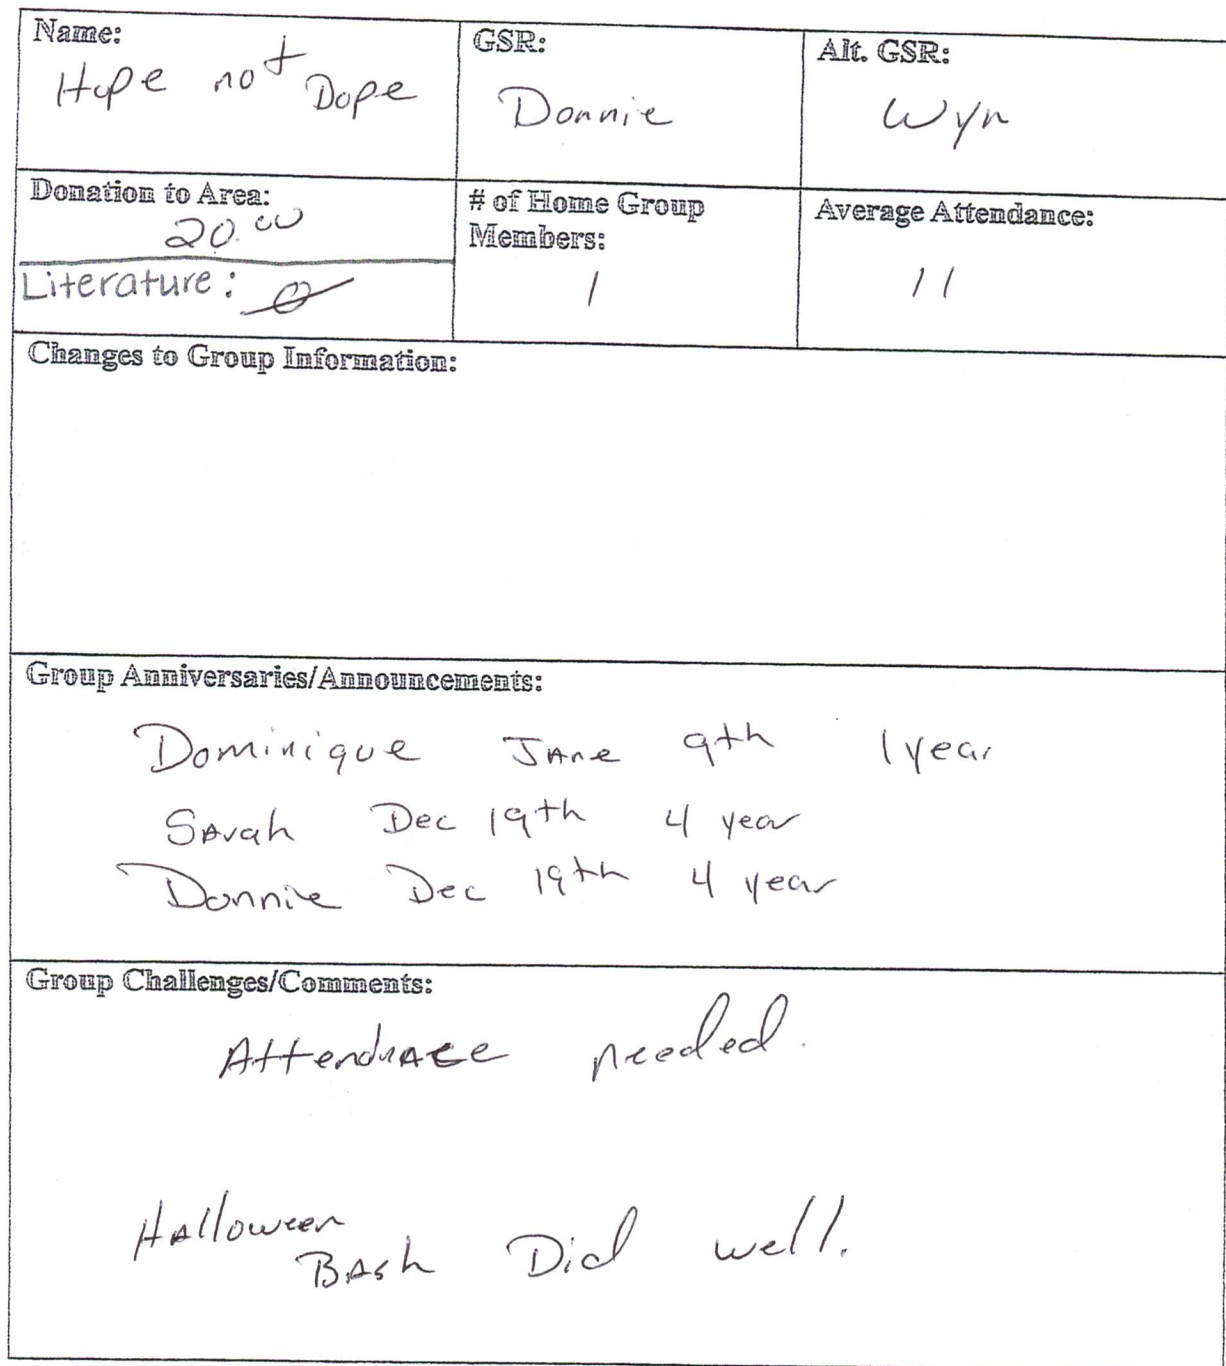 Name:
Hope not Dope
GSR:
Donnie
Alt. GSR:
Wyn
Donation to Area:
20.00
Literature: 0
# of Home Group
Members:
1
Average Attendance:
11
Changes to Group Information:
Group Anniversaries/Announcements:
Dominique 9th 1 year
Sarah Dec 19th 4 year
Donnie Dec 19th 4 year
Group Challenges/Comments:
needed.
Halloween
Bash Did well.